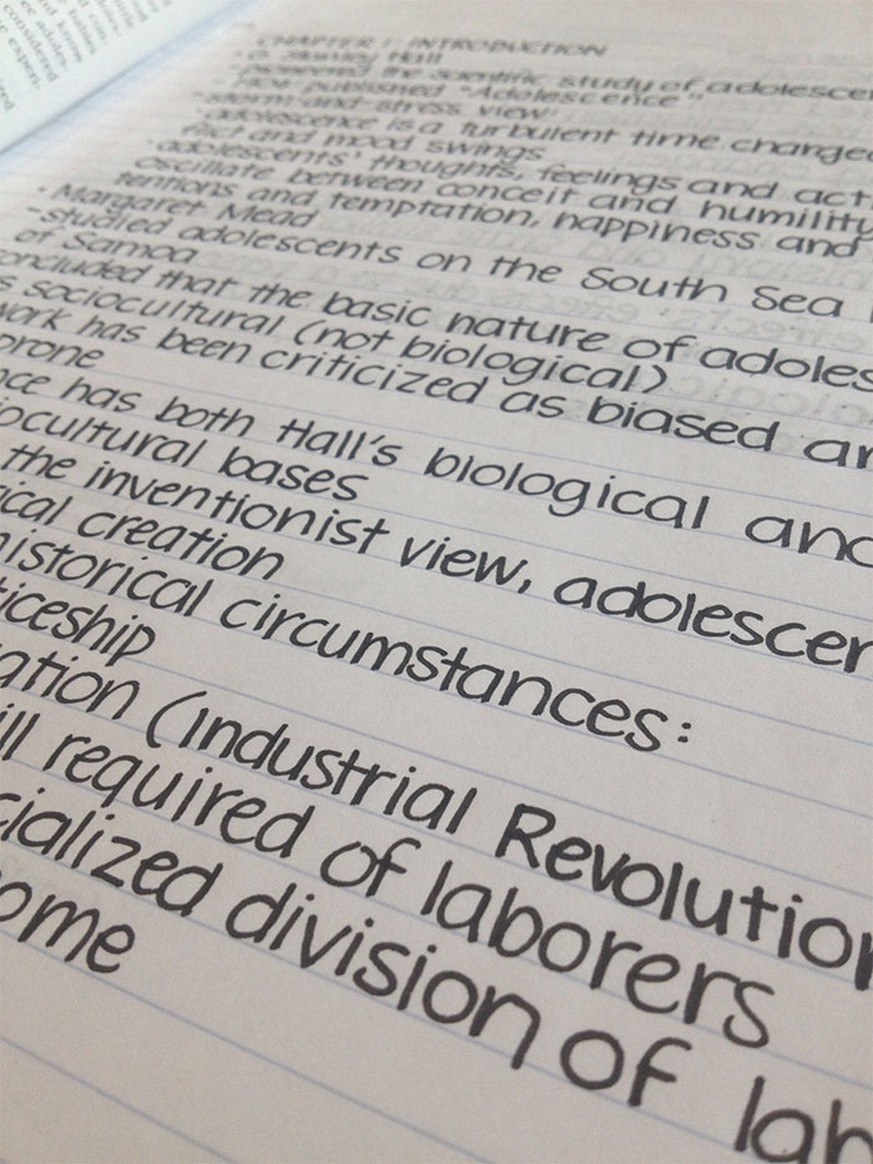 CHAPTER 1: INTRODUCTION
G. Stanley Hall
pioneered the scientific study of adolescen
published "Adolescence"
storm-and-stress view:
adolescence is a turbulent time charged
flict and mood swings
adolescents' thoughts, feelings and acti
oscillate between conceit and humility
tentions and temptation, happiness and
Margaret Mead
-studied adolescents on the South Sea
of Samoa
oncluded that the basic nature of adoles
s sociocultural (not biological)
work has been criticized as biased an
prone
nce has both Hall's biological and
iocultural bases
the inventionist view, adolescen
ical creation
historical circumstances:
ticeship
ation (Industrial Revolution
ill required of laborers
cialized division of lab
ome